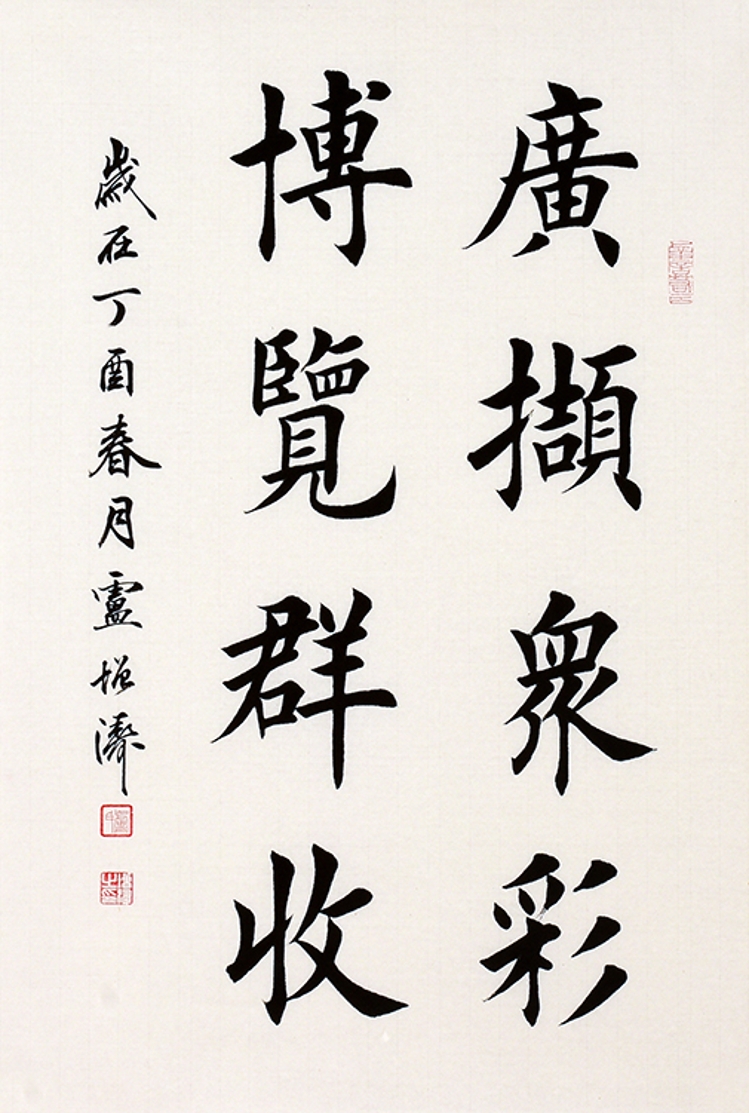 廣擷衆彩
博覽群收
歲在丁酉春月盧增濟